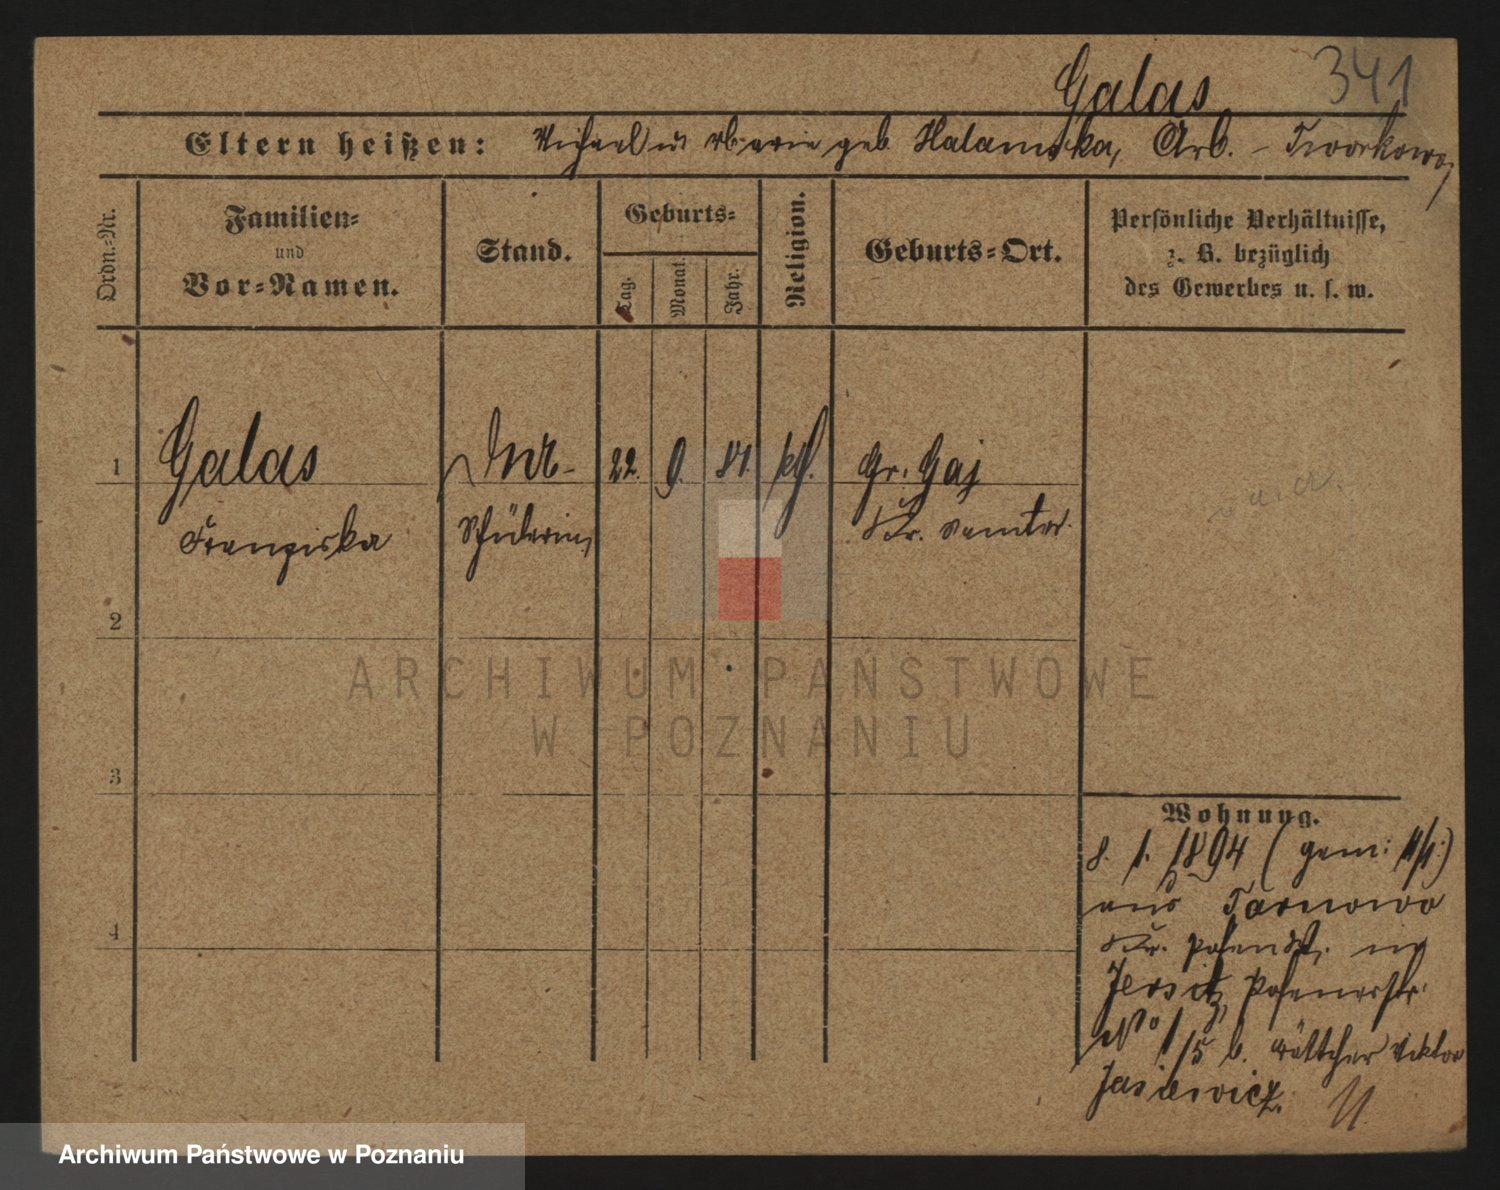 Galas 341
Eltern heißen: Michael u. Marie geb. Halamska, Arb. - Tworkowo
Ordn.-Nr.
Familien-
und
Vor-Namen.
Stand.
Geburts-
Tag.
Monat.
Jahr.
Religion.
Geburts-Ort.
Persönliche Verhältnisse,
z. B. bezüglich
des Gewerbes u. s. w.
1 Galas 22. 9. 81. kth. Gr. Gaj
Franziska Schülerin Kr. Samter
2
3
4
Wohnung.
8. 1. 1894 (gem:
aus Tarnowo
Kr. Posen W. in
Jersitz, Posenerstr.
No b. Böttcher Viktor
Jasiewicz.
ARCHIWUM PAŃSTWOWE
W POZNANIU
Archiwum Państwowe w Poznaniu